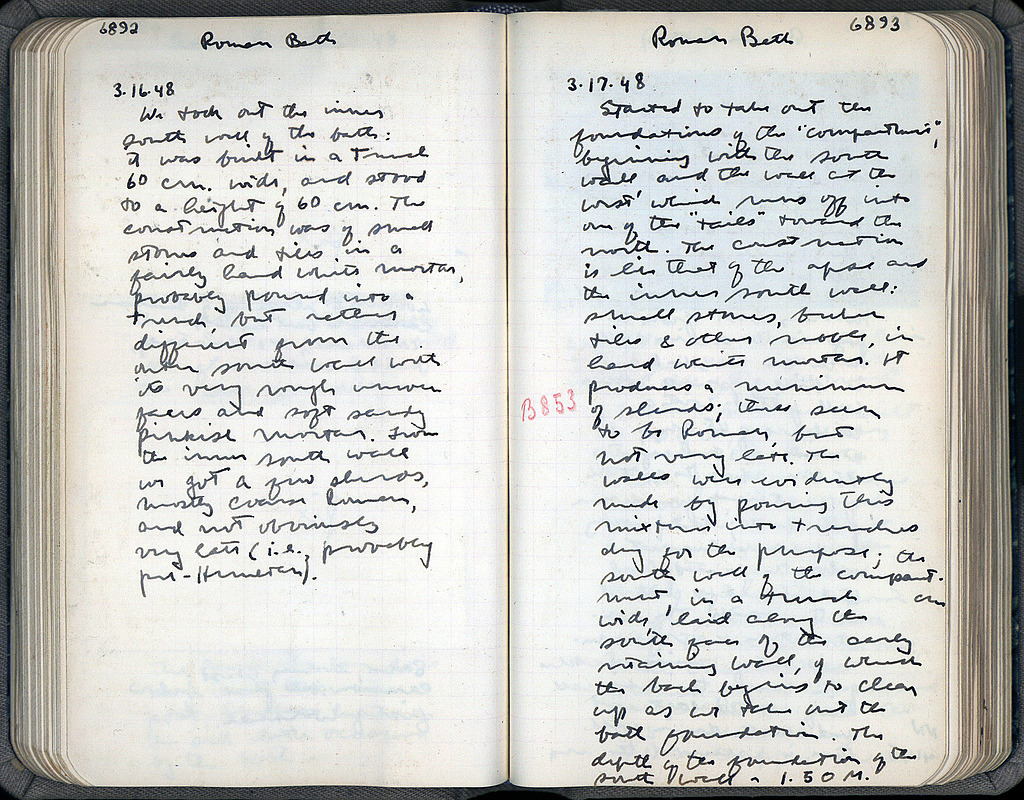 6892
Roman Bath
3.16.48
We took out the inner
south wall of the bath:
it was built in a trench
60 cm. wide, and stood
to a height of 60 cm. The
construction was of small
stones and tiles in a
fairly hard white mortar,
probably poured into a
trench, but rather
different from the
outer south wall with
its very rough uneven
faces and soft sandy
pinkish mortar. From
the inner south wall
we got a few sherds,
mostly coarse Roman,
and not obviously
very late (i.e., probably
pre-Herulian).
6893
Roman Bath
3.17.48
Started to take out the
foundations of the "compartment",
beginning with the south
wall and the wall at the
west which runs off into
one of the "tails" toward the
north. The construction
is like that of the apse and
the inner south wall:
small stones, broken
tiles & other rubble, in
hard white mortar. It
produces a minimum
B853
of sherds; these seem
to be Roman, but
not very late. The
walls were evidently
made by pouring this
mixture into trenches
dug for the purpose; the
south wall of the compart-
ment, in a trench cm
wide, laid along the
south face of the early
retaining wall, of which
the back begins to clear
up as we take out the
bath foundation. The
depth of the foundation of the
south wall = 1.50 M.